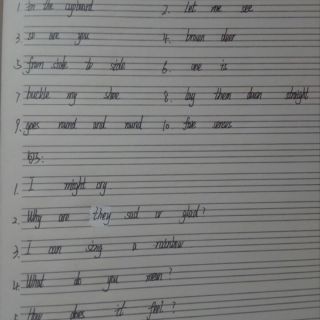 1. to the cupboard 2. let me see
3. so are you 4. brown deer
5. from side to side 6. one is
7. buckle my shoe 8. lay them down straight
9. goes round and round 10. five senses
句子:
1. I might cry
2. Why are they sad or glad?
3. I can sing a rainbow
4. What do you mean?
5. How does it feel?